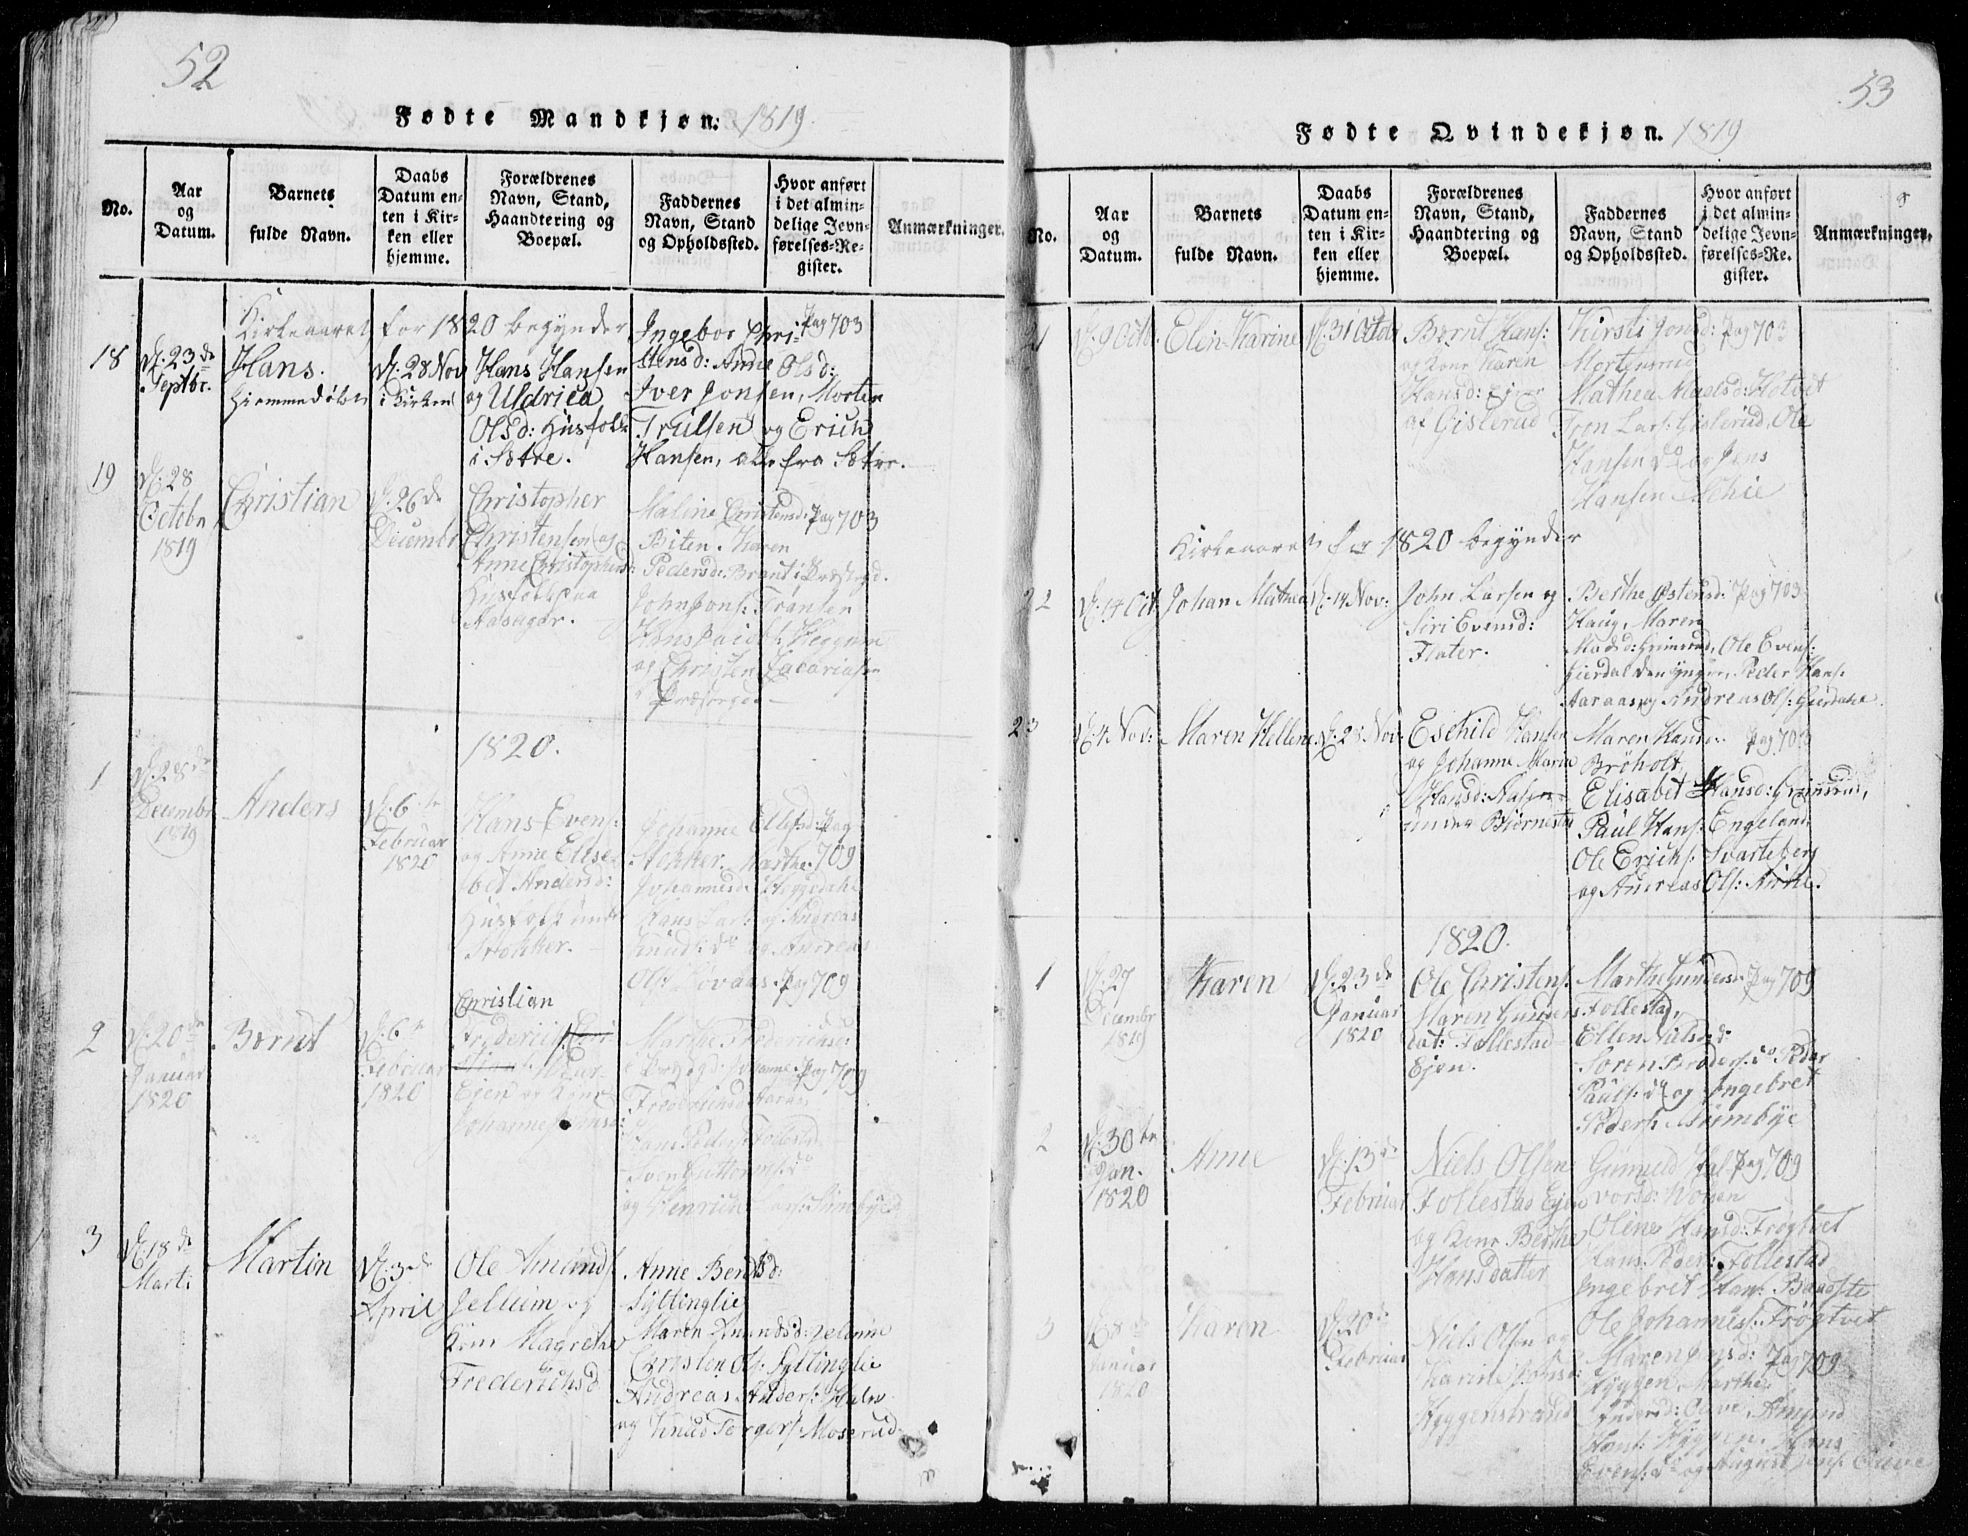 52
Fødte Mandkjøn. 1819.
No.
Aar
og
Datum.
Barnets
fulde Navn.
Daabs
Datum en-
ten i Kir-
ken eller
hjemme.
Forældrenes
Navn, Stand,
Haandtering og
Boepæl.
Faddernes
Navn, Stand
og Opholdssted.
Hvor anført
i det almin-
delige Jevn-
førelses-Re-
gister.
Anmærkninger.
Kirkeaaret for 1820 begynder
18
d: 23de
Septbr.
Hans.
Hiemmedøbt
d: 28 Nov
i Kirken
Hans Hansen
og Uldrica
Olsd: Husfolk
i Sætre.
Ingebor Chri-
stensd: Anne Olsd:
Iver Jonsen, Morten
Trulsen og Erich
Hansen, alle fra Sætre.
Pag 703
19
d: 28
Octobr
1819
Christian
d: 26de
Decembr
Christopher
Christensen og
Anne Christophersd:
Husfolk paa
Aasagar.
Maline Christensd:
Biten. Karen
Pedersd: Brant i Præstegd.
John Jons: Transen
Hans Jacobs: Heggum
og Christen Zacariasen
Præstegd
Pag 703
1820.
1
d: 28de
Decembr
1819
Anders
d: 6te
Februar
1820
Hans Evens:
og Anne Elise-
bet Andersd:
Husfolk under
Stokker.
Johanne Ellefsd:
Stokker. Marthe
Johannesd: Heggedahl
Hans Lars: og Andreas
Knuds: do og Andreas
Ols: Løvaas.
Pag
709
Pag 709
2
d: 20de
Januar
1820
Bernt
d: 6te
Februar
1820
Christian
Friderich
Ejer og Kone
Johanne Jensd:
Marthe Frederichsd:
i Præstegd: Johanne
Frederichsd: Aaraas
Hans Peders: Follestad
Sven Guttorms: do
og Henrich Lars: Sundbye
Pag 709
3
d: 18de
Marti
Martin
d: 3de
April
Ole Amunds:
Jelluim og
Kone Magrete
Frederichsd
Anne Berntsd:
Syltinglie
Maren Amundsd: Jelluim
Christen Ols: Syltinglie
Andreas Anders: Halv
og Knud Torgers: Moserud
53
Fødte Qvindekjøn. 1819
No.
Aar
og
Datum.
Barnets
fulde Navn.
Daabs
Datum en-
ten i Kir-
ken eller
hjemme.
Forældrenes
Navn, Stand,
Haandtering og
Boepæl.
Faddernes
Navn, Stand
og Opholdssted.
Hvor anført
i det almin-
delige Jevn-
førelses-Re-
gister.
Anmærkninger.
21
d: 9 Octb.
Elen Karine
d: 31 Octobr
Bernt Hans:
og Kone Karen
Hansd: Ejer
af Gislerud
Kirsti Jonsd:
Mortensrud
Mathea Madsd: Hotvet
Iron Lars: Gislerud, Ole
Hansen do og Jens
Hansen Aschie
Pag 703
Kirkeaaret for 1820 begynder
22
d: 14 Oct.
Johan Mathea
d: 14 Nov:
John Larsen og
Siri Evensd:
Flater.
Berthe Østensd:
Haug, Maren
Madsd: Grimsrud, Ole Evens:
Gierdal den yngre, Peder Hans:
Aaraas, og Andreas Ols: Gierdahl.
Pag 703
23
d: 4 Nov:
Maren Hellene
d: 28 Nov:
Eschild Hansen
og Johanne Maria
Hansd: Aasen
under Biørnestad
Maren Hansd:
Brøholt,
Elisabet Hansd: Grimsrud,
Paul Hans: Engeland,
Ole Erichs: Svarteberg
og Andreas Ols:
Pag 703
1820.
1
d: 27
Decembr
1819
Karen
d: 23de
Januar
1820
Ole Christens:
Maren Gunders
dat: Follestad
Ejen.
Marthe Gundersd:
Follestad,
Ellen Nielsd: do
Søren Peders: do Peder
Pauls: do og Ingebret
Peders: Asimbye
Pag 709
2
d: 30te
Jan.
1820
Anne
d: 13de
Februar
Niels Olsen
Follestad Ejer
og Kone Berthe
Hansdatter
Gunnild Hal-
vorsd:
Oline Hansd: Frøgtvet
Hans Peders: Follestad
Ingebret Hans:
Ole Johannes: Frøgtvet
Pag 709
3
d: 8de
Januar
1820
Karen
d: 20de
Februar
Niels Olsen og
Karine Jonsd:
Høggenstrand
Maren Jensd:
Høggen Marthe
Andersd: Amund
Hans: Høggen, Hans
Evens: do og August Jens:
Pag 709